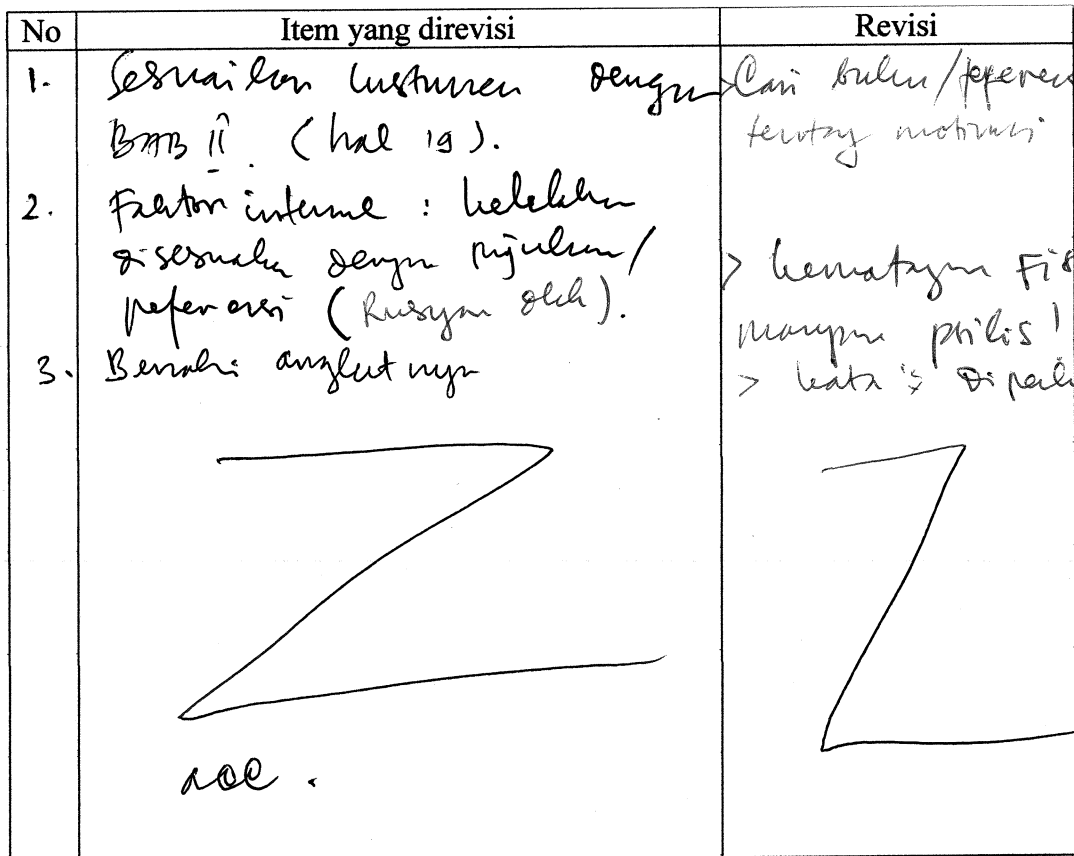 No Item yang direvisi Revisi
1. Sesuaikan Instumen dengan
BAB II (hal 19).
> Cari buku/referen
tentang motivasi
2. Faktor interne :
disesuaikan dengan rujukan/
referensi (Rusyan dkk).
> kematagan Fis
maupun psikis!
3. Benahi angketnya
> kata "
acc.